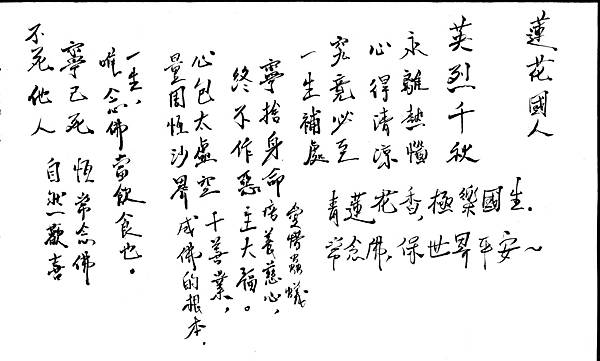 蓮花國人
英烈千秋
永離熱惱
心得清凉
究竟必至
一生補處
青蓮花香,極樂國生.
常念佛,保世界平安~
愛惜蟲蟻
寧捨身命 培養慈心,
終不作惡 主大福。
心包太虛空 十善業,
量周恆沙界 成佛的根本.
一生,
唯念佛當飲食也。
寧己死 恆常念佛
不死他人 自然歡喜